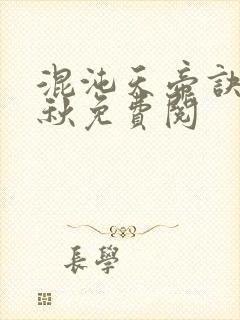 混沌天帝訣
秋免費閱
長學